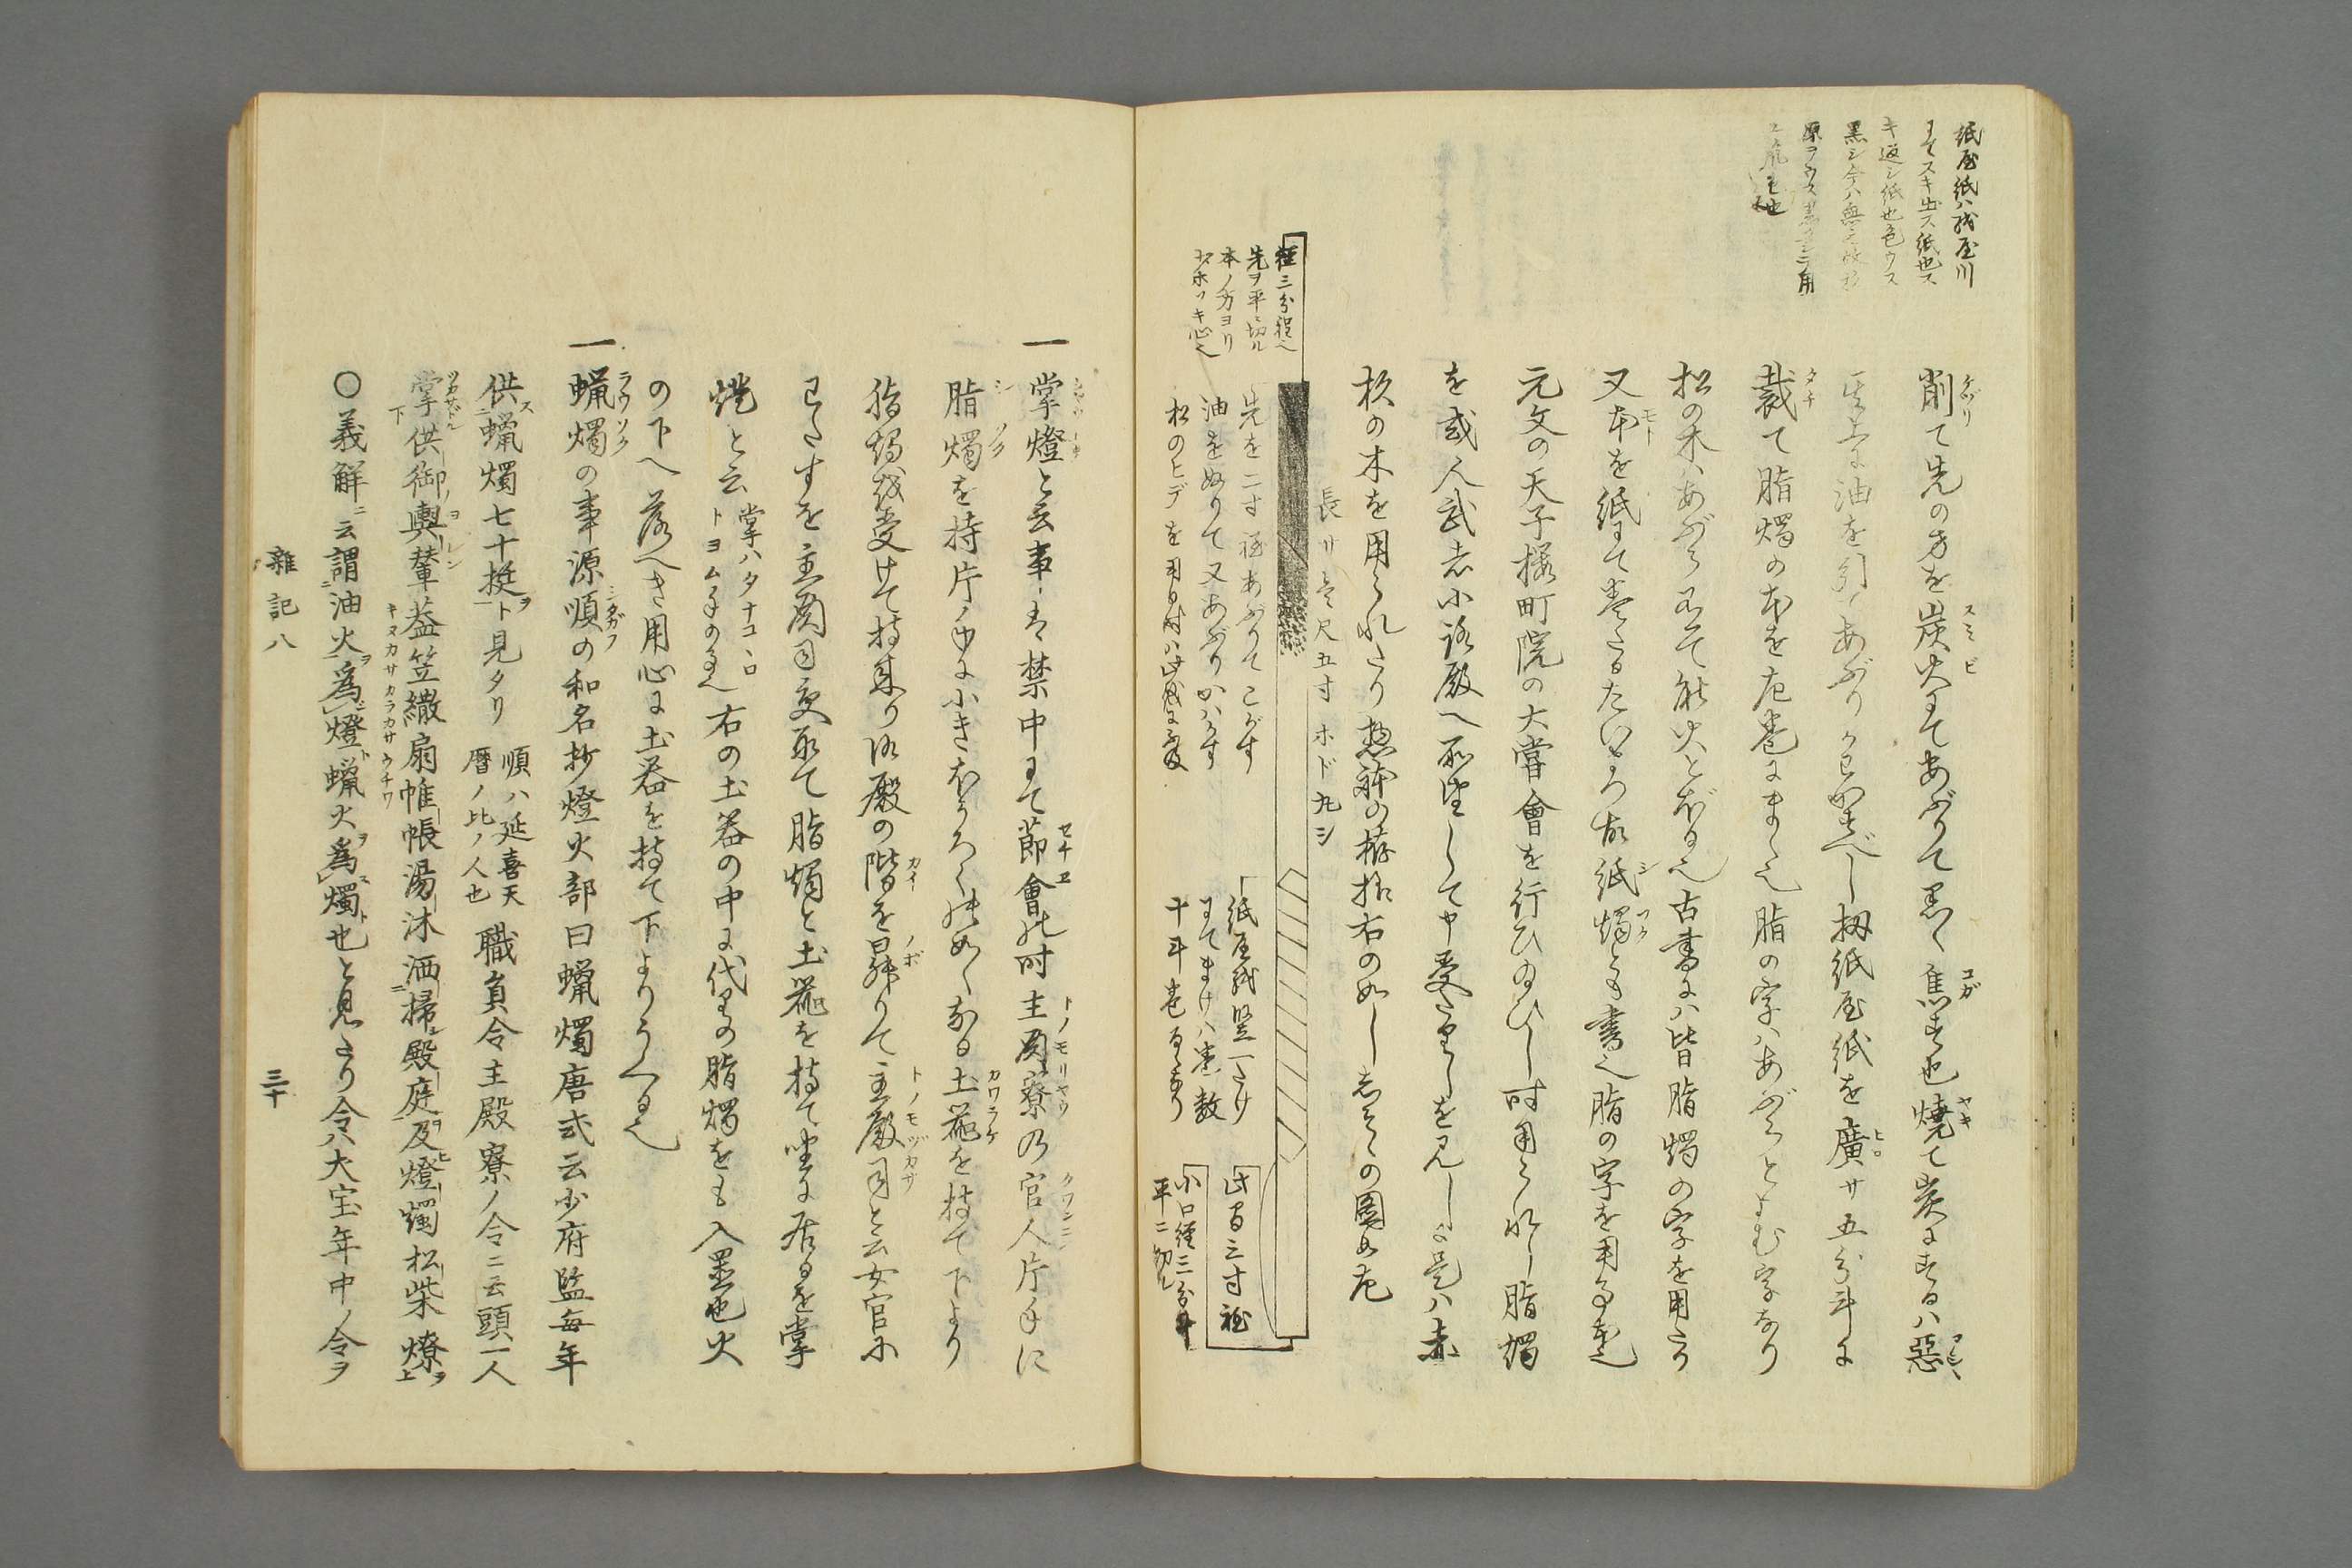 紙屋紙ハ紙屋川
ニてスキ出ス紙也ス
キ返シ紙也色ウス
黒シ今ハ無之故
削て先の方を炭火にてあぶりて黒く焦す也焼て炭にするハ悪
其上に油を引てあぶりかわかすべし扨紙屋紙を廣サ五分斗に
裁て脂燭の本を左巻にまく也脂の字ハあぶらとよむ字なり
松の木ハあぶら有て能火とぼる也古書にハ皆脂燭の字を用たり
又本を紙にて巻たるたいまつ故紙燭とも書也脂の字を用る本也
元文の天子櫻町院の大嘗會を行ひ給ひし時用られし脂燭
を或人武者小路殿へ所望して申受たりしを見しに是ハ赤
杦の木を用られたり惣躰の拵様右の如ししるしの圖如左
径三分程也
先ヲ平ニ切ル
本ノ方ヨリ
少ホソキ心也
先を二寸程あぶりてこがす
油をぬりて又あぶりかハかす
松のヒデを用る時ハ此義に不及
長サ壱尺五寸ホド丸シ
紙屋紙竪一たけ
にてまけハ巻数
十斗巻るゝなり
此間三寸程
小口径三分斗
平ニ切ル
一掌燈と云事ハ禁中にて節會の時主殿寮の官人片手に
脂燭を持片ノ手に小きおしきの如くなる土器を持て下より
脂燭を受けて持来り御殿の階を昇りて主殿司と云女官に
わたすを主殿司受取て脂燭と土器を持て坐に居るを掌
燈と云掌ハタナコヽロトヨム手のうら也右の土器の中に代りの脂燭をも入置也火
の下へ落へき用心に土器を持て下よりうくる也
一蝋燭の事源順の和名抄燈火部曰蝋燭唐式云少府監毎年
供蝋燭七十挺ト見タリ順ハ延喜天暦ノ比ノ人也職員令主殿寮ノ令ニ云頭一人
掌供御輿輦葢笠繖扇帷帳湯沐洒掃殿庭及燈燭松柴燎
〇義解ニ云謂油火為燈蝋火為燭也と見えたり令ハ大宝年中ノ令ヲ
雜記八
三十